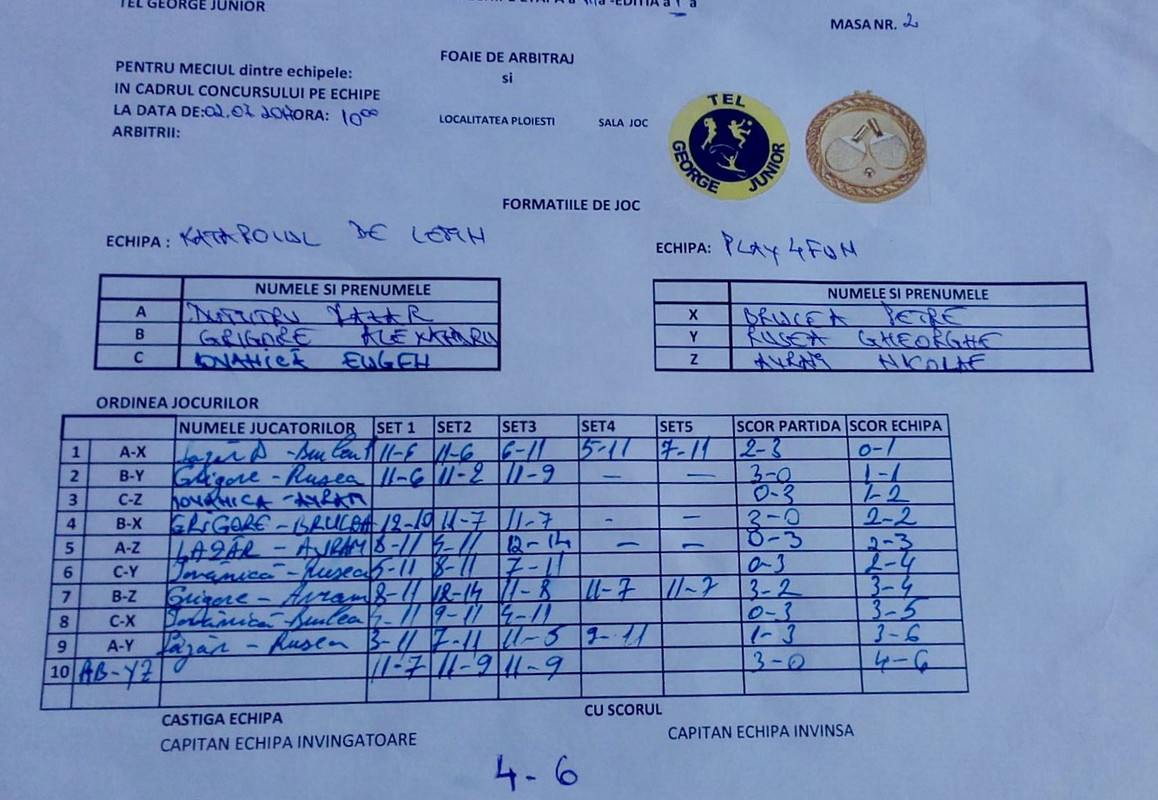 TEL GEORGE JUNIOR
ETAPA a -EDITIA a a
MASA NR. 2
FOAIE DE ARBITRAJ
si
PENTRU MECIUL dintre echipele:
IN CADRUL CONCURSULUI PE ECHIPE
LA DATA DE: ORA: 10⁰⁰
LOCALITATEA PLOIESTI SALA JOC
ARBITRII:
TEL GEORGE JUNIOR
FORMATIILE DE JOC
ECHIPA : DE LEMN
ECHIPA: PLAY 4FUN
NUMELE SI PRENUMELE
A DUMITRU LAZAR
B GRIGORE ALEXANDRU
C IOVANICĂ EUGEN
NUMELE SI PRENUMELE
X BRUCEA PETRE
Y RUSEA GHEORGHE
Z AVRAM NICOLAE
ORDINEA JOCURILOR
NUMELE JUCATORILOR SET 1 SET2 SET3 SET4 SET5 SCOR PARTIDA SCOR ECHIPA
1 A-X Lazăr D - 11-6 6-11 5-11 7-11 2-3 0-1
2 B-Y Grigore - Rusea 11-6 11-2 11-9 — — 3-0 1-1
3 C-Z IOVANICA - AVRAM 0-3 1-2
4 B-X GRIGORE - BRUCEA 12-10 11-7 11-7 - — 3-0 2-2
5 A-Z LAZĂR - AVRAM 8-11 12-14 — — 0-3 2-3
6 C-Y Iovănică - Rusea 8-11 7-11 0-3 2-4
7 B-Z Grigore - Avram 8-11 12-14 11-8 11-7 11-7 3-2 3-4
8 C-X Iovănică - 9-11 0-3 3-5
9 A-Y Lazăr - Rusea 3-11 7-11 11-5 9-11 1-3 3-6
10 AB-YZ 11-7 11-9 11-9 3-0 4-6
CASTIGA ECHIPA CU SCORUL
CAPITAN ECHIPA INVINGATOARE CAPITAN ECHIPA INVINSA
4-6